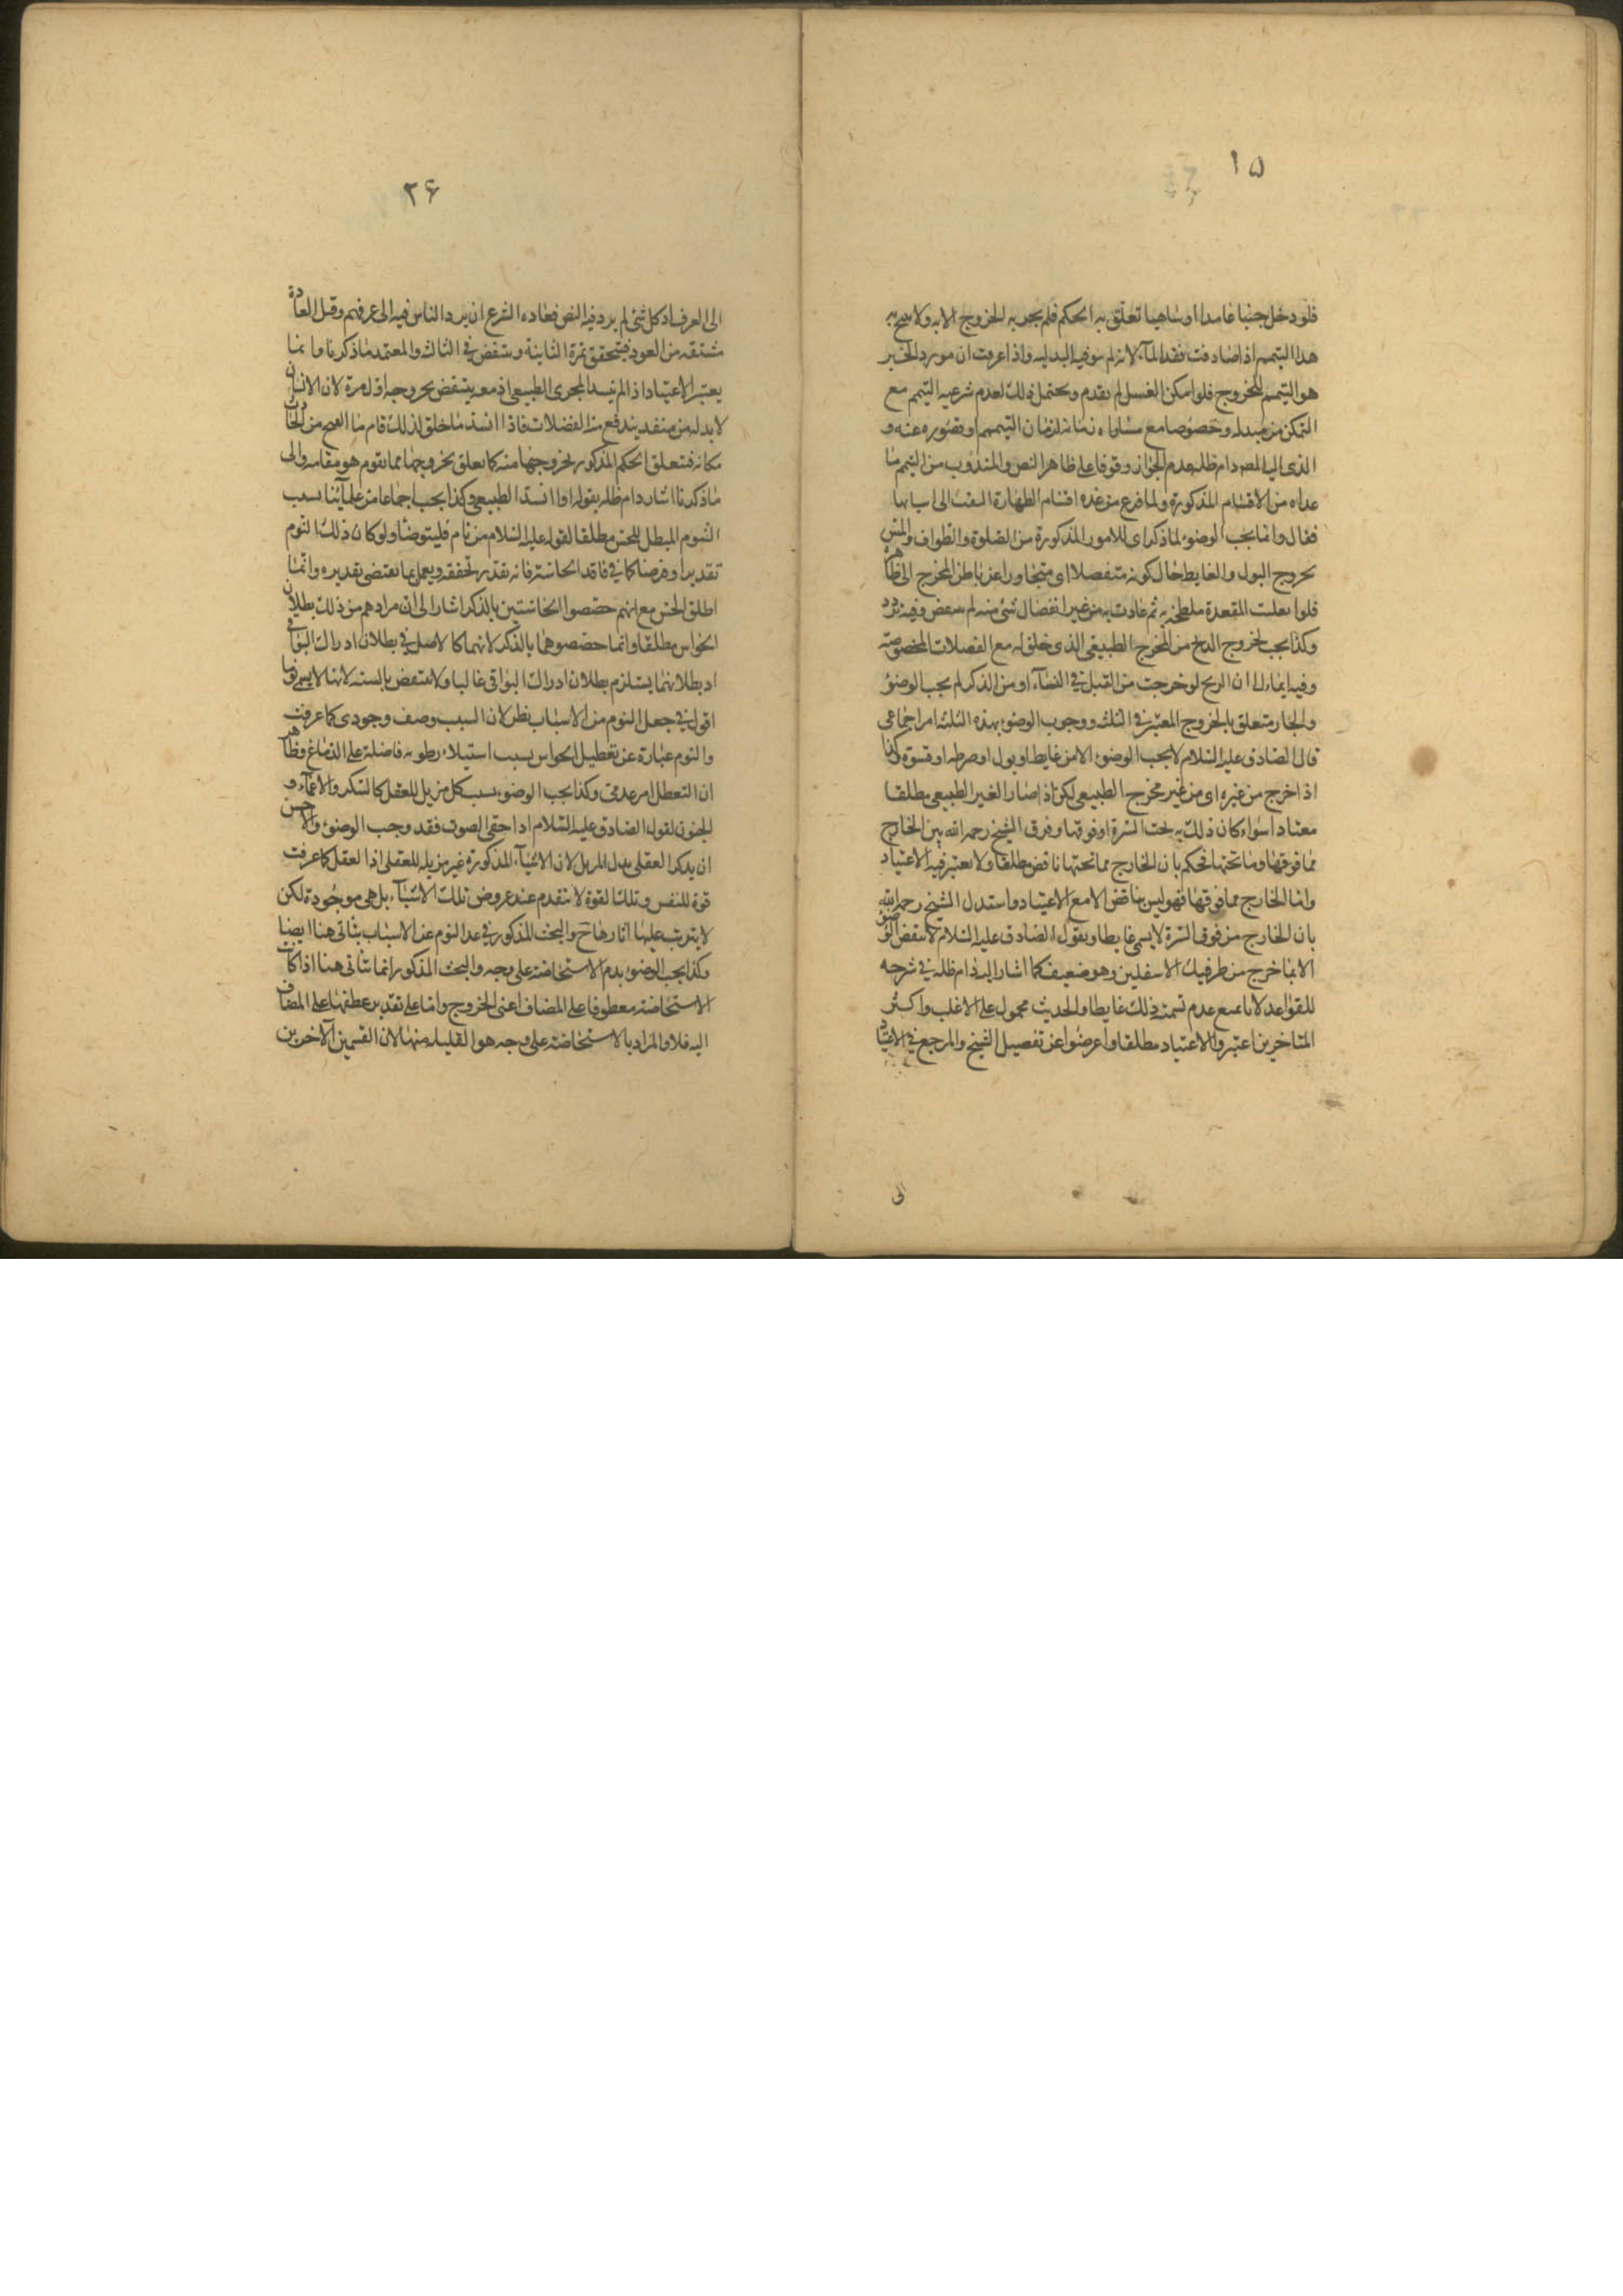 ١۵
فلو دخل جنبا عامدا او ساهيا تعلق به الحكم فلم يجز به الخروج الا به ولا يبيح به
هذا التيمم اذا صادفت فقد الماء لانه لم يوفيه البدليه واذا عرفت ان مورد الخبر
هو التيمم للخروج فلو امكن الغسل لم يقدم ويحتمل ذلك لعدم شرعيه التيمم مع
التمكن من مبدله وخصوصا مع مساواة زمانه لزمان التيمم او قصوره عنه و
الذي اليه المصه دام ظله عدم الجواز وقوفا على ظاهر النص والمندوب من التيمم ما
عداه من الاقسام المذكورة ولما فرغ من عده اقسام الطهارة التفت الى اسبابها
فقال وانما يجب الوضوء لما ذكر اى للامور المذكورة من الصلوة والطواف والمس
بخروج البول والغايط حال كونه منفصلا اى متجاوزا عن باطن المخرج الى ظاهره
فلو ابعلت المقعدة ملطخه به ثم عادت به من غير انفصال شئ منه لم ينقض وفيه تردد
وكذا يجب لخروج الريح من المخرج الطبيعى الذى خلق له مع الفضلات المخصوصه
وفيه ايماء الى ان الريح لو خرجت من القبل فى النساء او من الذكر لم يجب الوضوء
والجار متعلق بالخروج المعتبر فى الثلث ووجوب الوضوء بهذه الثلثه امر اجماعى
قال الصادق عليه السلام لا يجب الوضوء الا من غايط او بول او ضرطه او فسوة وكذا
اذا خرج من غيره اى من غير مخرج الطبيعى لكن اذ اصار الغير الطبيعى مطلقا
معتادا سواء كان ذلك به تحت السرة او فوقها وفرق الشيخ رحمه الله بين الخارج
مما فوقها وما تحتها فحكم بان الخارج مما تحتها ناقض مطلقا ولا يعتبر فيه الاعتياد
واما الخارج مما فوقها فهو ليس بناقض الا مع الاعتياد واستدل الشيخ رحمه الله
بان الخارج من فوق السرة لا يسمى غايطا وبقول الصادق عليه السلام لا ينقض الوضوء
الا بما خرج من طرفيك الاسفلين وهو ضعيف كما اشار اليه دام ظله فى شرحه
للقواعد لانا نمنع عدم تسمية ذلك غايطا والحديث محمول على الاغلب واكثر
المتاخرين اعتبروا الاعتياد مطلقا واعرضوا عن تفصيل الشيخ والمرجع فى الاعتياد
الى
٢۶
الى العرف اذ كل شئ لم يرد فيه النص فعاده الشرع ان يرد الناس فيه الى عرفهم وقيل العادة
مشتقه من العود فيتحقق بمرة الثانية وينتقض فى الثالثه والمعتمد ما ذكرنا وانما
يعتبر الاعتياد اذا لم ينسد المجرى الطبيعى اذ معه ينتقض بخروجه اول مرة لان الانسان
لا بد له من منفد يندفع منه الفضلات فاذا انسد ما خلق لذلك قام ما انفتح من الحادث
مكانه فتعلق الحكم المذكور لخروجها منه كما تعلق بخروجها مما يقوم هو مقامه والى
ما ذكرنا اشار دام ظله بقوله او انسد الطبيعى وكذا يجب اجماعا من علمائنا بسبب
النوم المبطل للحس مطلقا لقوله عليه السلام من نام فليتوضا ولو كان ذلك النوم
تقديرا وفرضا كما فى فاقد الحاسة فانه يقدر تحققه ويعمل بما يقتضى تقديره وانما
اطلق الحس مع انهم خصصوا الحاستين بالذكر اشارا الى ان مرادهم من ذلك بطلان
الحواس مطلقا وانما خصصوهما بالذكر لانهما كا لاصل فى بطلان ادراك البواقى
اذ بطلانهما يستلزم بطلان ادراك البواقى غالبا ولا ينتقض بالسنه لانها لا يسمى نوما
اقول فى جعل النوم من الاسباب نظر لان السبب وصف وجودى كما عرفت
والنوم عبارة عن تعطيل الحواس بسبب استيلاء رطوبه فاضلة على الدماغ وظاهر
ان التعطل امر عدمى وكذا يجب الوضوء بسبب كل مزيل للعقل كالسكر والاغماء و
الجنون لقول الصادق عليه السلام اذا خفى الصوت فقد وجب الوضوء والاحسن
ان يذكر العقلى بدل المزيل لان الاشياء المذكورة غير مزيله للعقل اذا العقل كما عرفت
قوة للنفس وتلك القوة لا تنقدم عند عروض تلك الاشياء بل هى موجودة لكن
لا يترتب عليها اثارها ح والبحث المذكور فى عد النوم من الاسباب يتاتى هنا ايضا
وكذا يجب الوضوء بدم الاستحاضة على وجه والبحث المذكور انما يتاتى هنا اذا كانت
الاستحاضة معطوفا على المضاف اعنى الخروج واما على تقدير عطفها على المضاف
اليه فلا والمراد بالاستحاضة على وجه هو القليله منها لان القسمين الآخرين